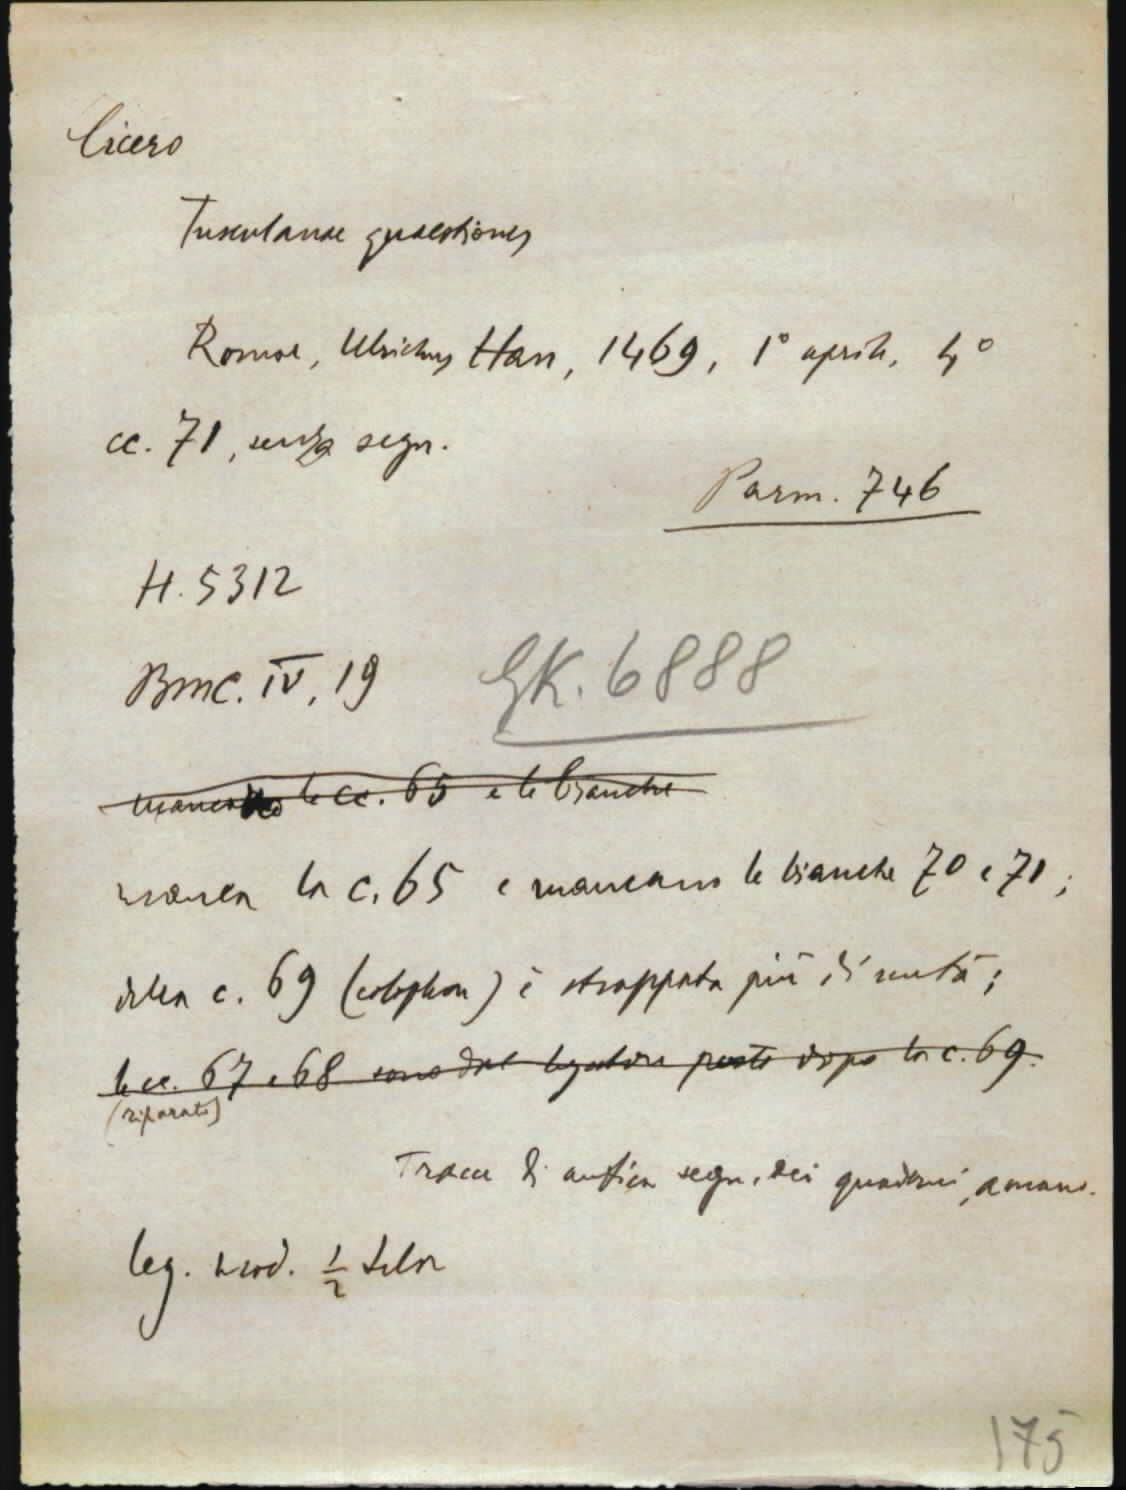 Cicero
Tusculanae quaestiones
Romae, Ulrichus Han, 1469, 1° aprile, 4°
cc. 71, senza segn.
Parm. 746
H. 5312
BMC. IV, 19
GK. 6888
mancano le cc. 65 e le bianche
manca la c. 65 e mancano le bianche 70 e 71;
della c. 69 (colophon) è strappata più di metà;
le cc. 67 e 68 sono dal legatore poste dopo la c. 69.
(riparato)
Tracce di antica segn. dei quaderni, a mano.
leg. mod. 1/2 tela
175